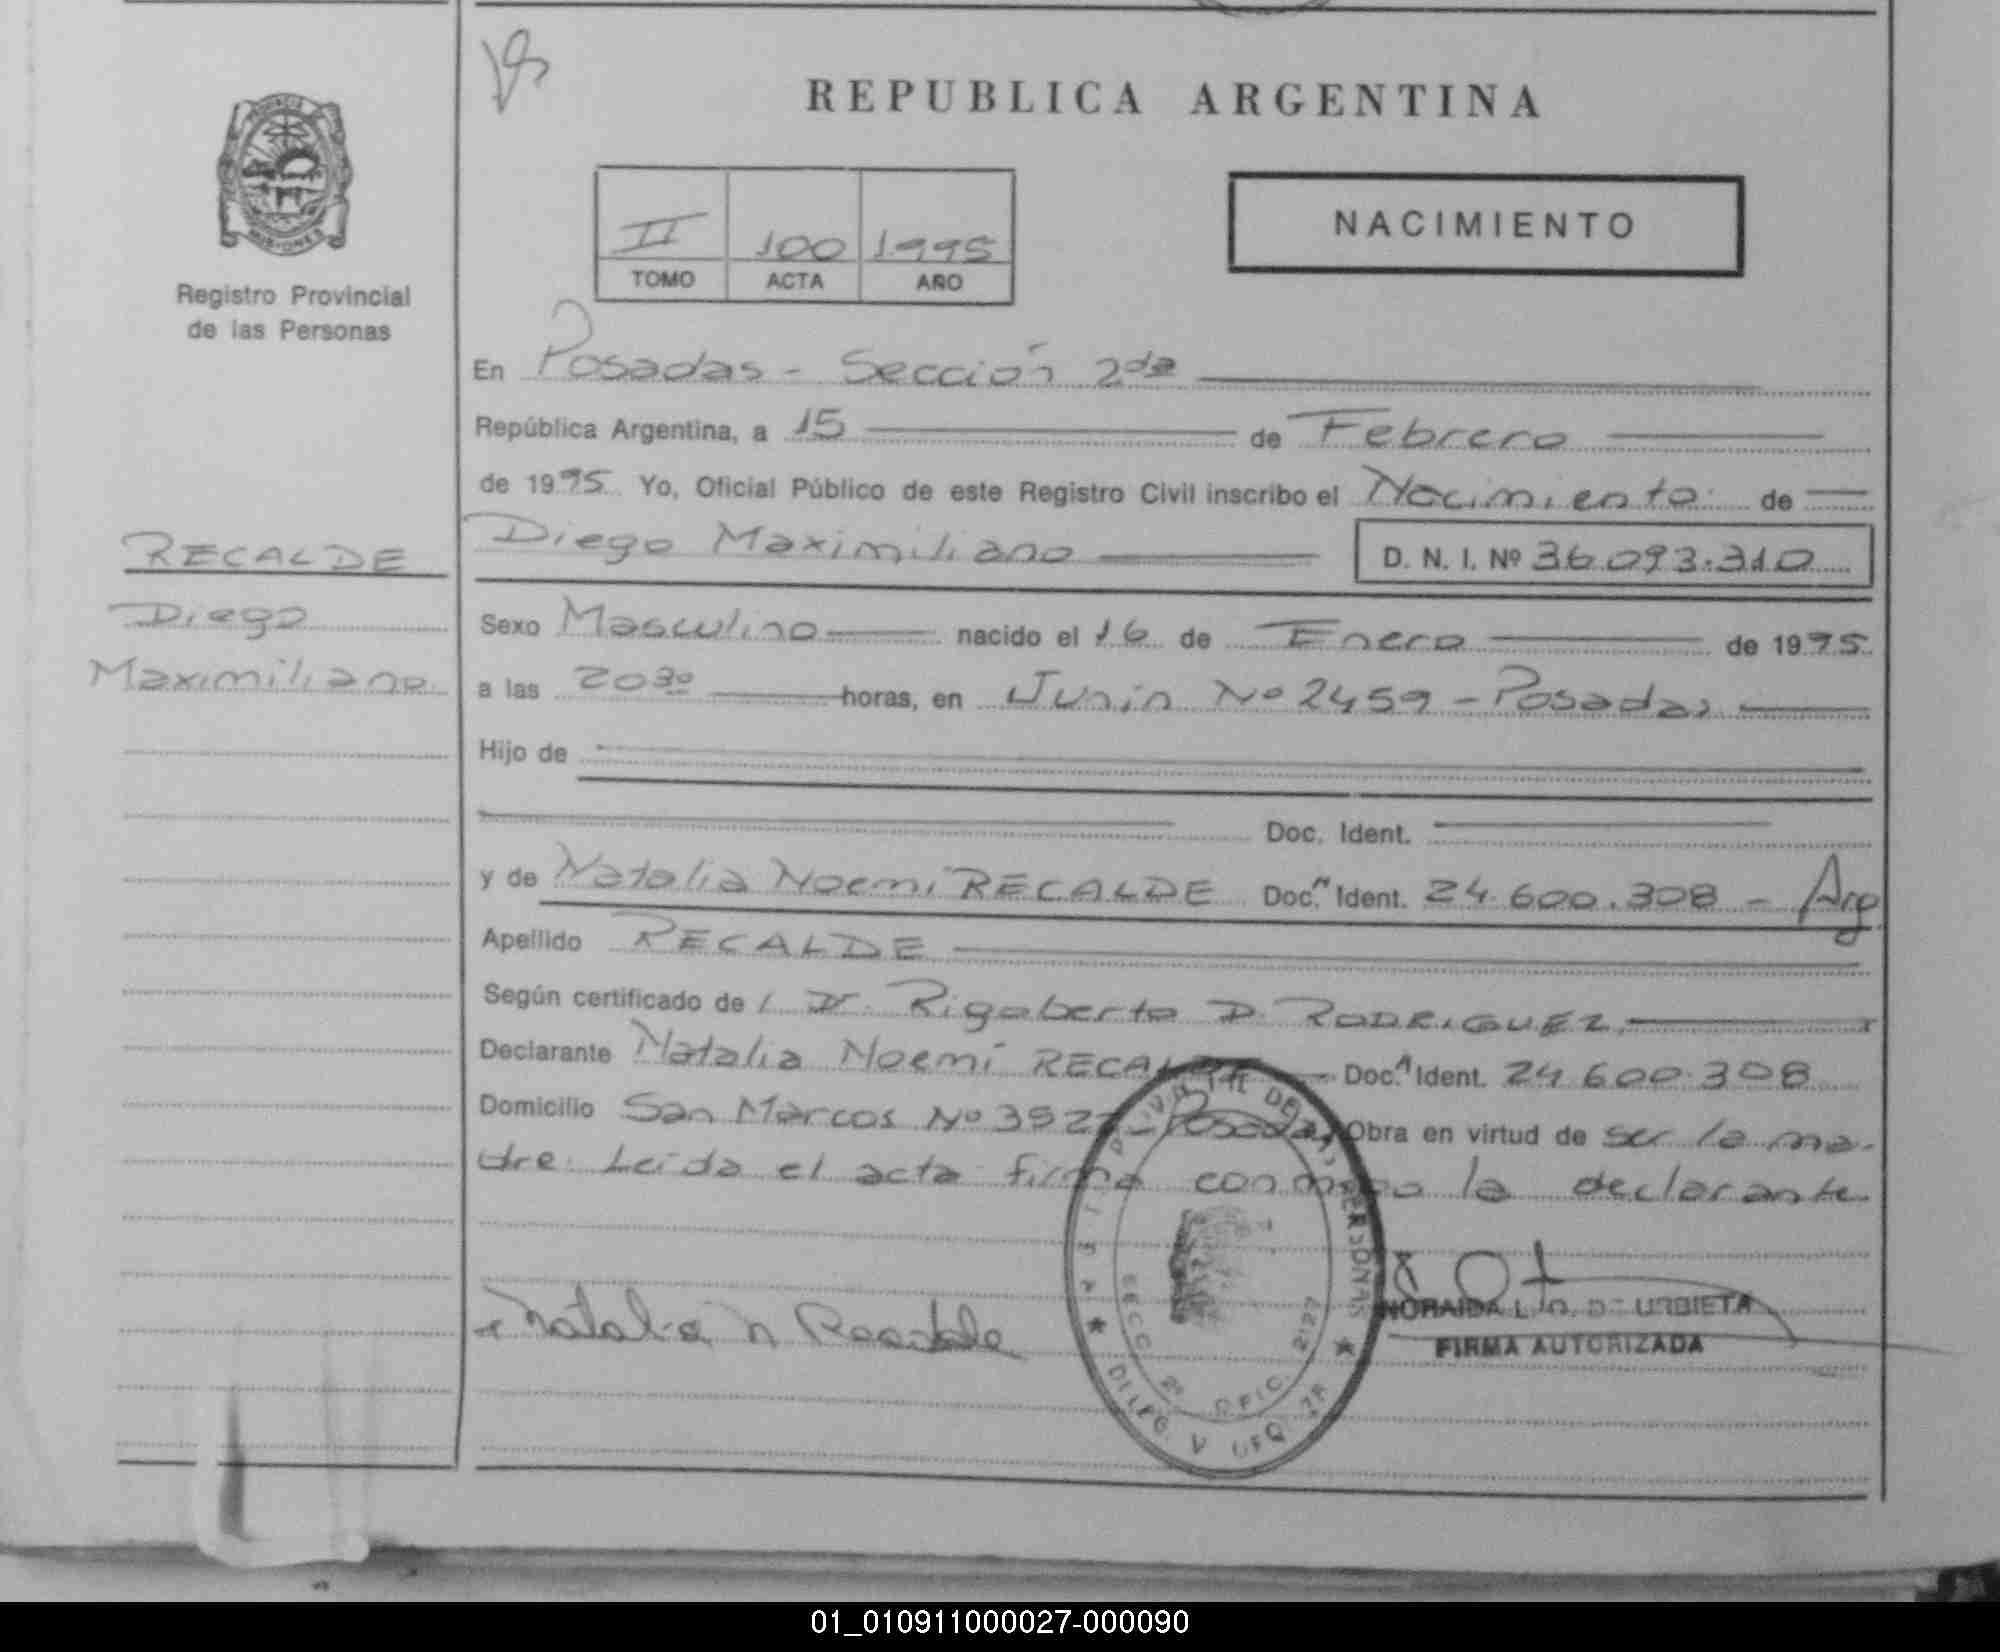 REPUBLICA ARGENTINA
PROVINCIA
MISIONES
Registro Provincial
de las Personas
II 100 1995
TOMO ACTA AÑO
NACIMIENTO
En Posadas - Sección 2da
República Argentina, a 15 de Febrero
de 1995 Yo, Oficial Público de este Registro Civil inscribo el Nacimiento de
RECALDE
Diego
Maximiliano
Diego Maximiliano D. N. I. Nº 36.093.310
Sexo Masculino nacido el 16 de Enero de 1995
a las 20 30 horas, en Junin Nº 2459 - Posadas
Hijo de
Doc. Ident.
y de Natalia Noemi RECALDE Doc. Ident. 24.600.308 - Arg
Apellido RECALDE
Según certificado de Dr. Rigoberto D. RODRIGUEZ
Declarante Natalia Noemi RECALDE Doc. Ident. 24.600.308
Domicilio San Marcos Nº Posadas Obra en virtud de ser la ma-
dre. Leida el acta firma conmigo la declarante
Natalia N Recalde
DE LAS PERSONAS
SECC. 2ª OFIC. 2127
NORAIDA L. DE URBIETA
FIRMA AUTORIZADA
01_010911000027-000090